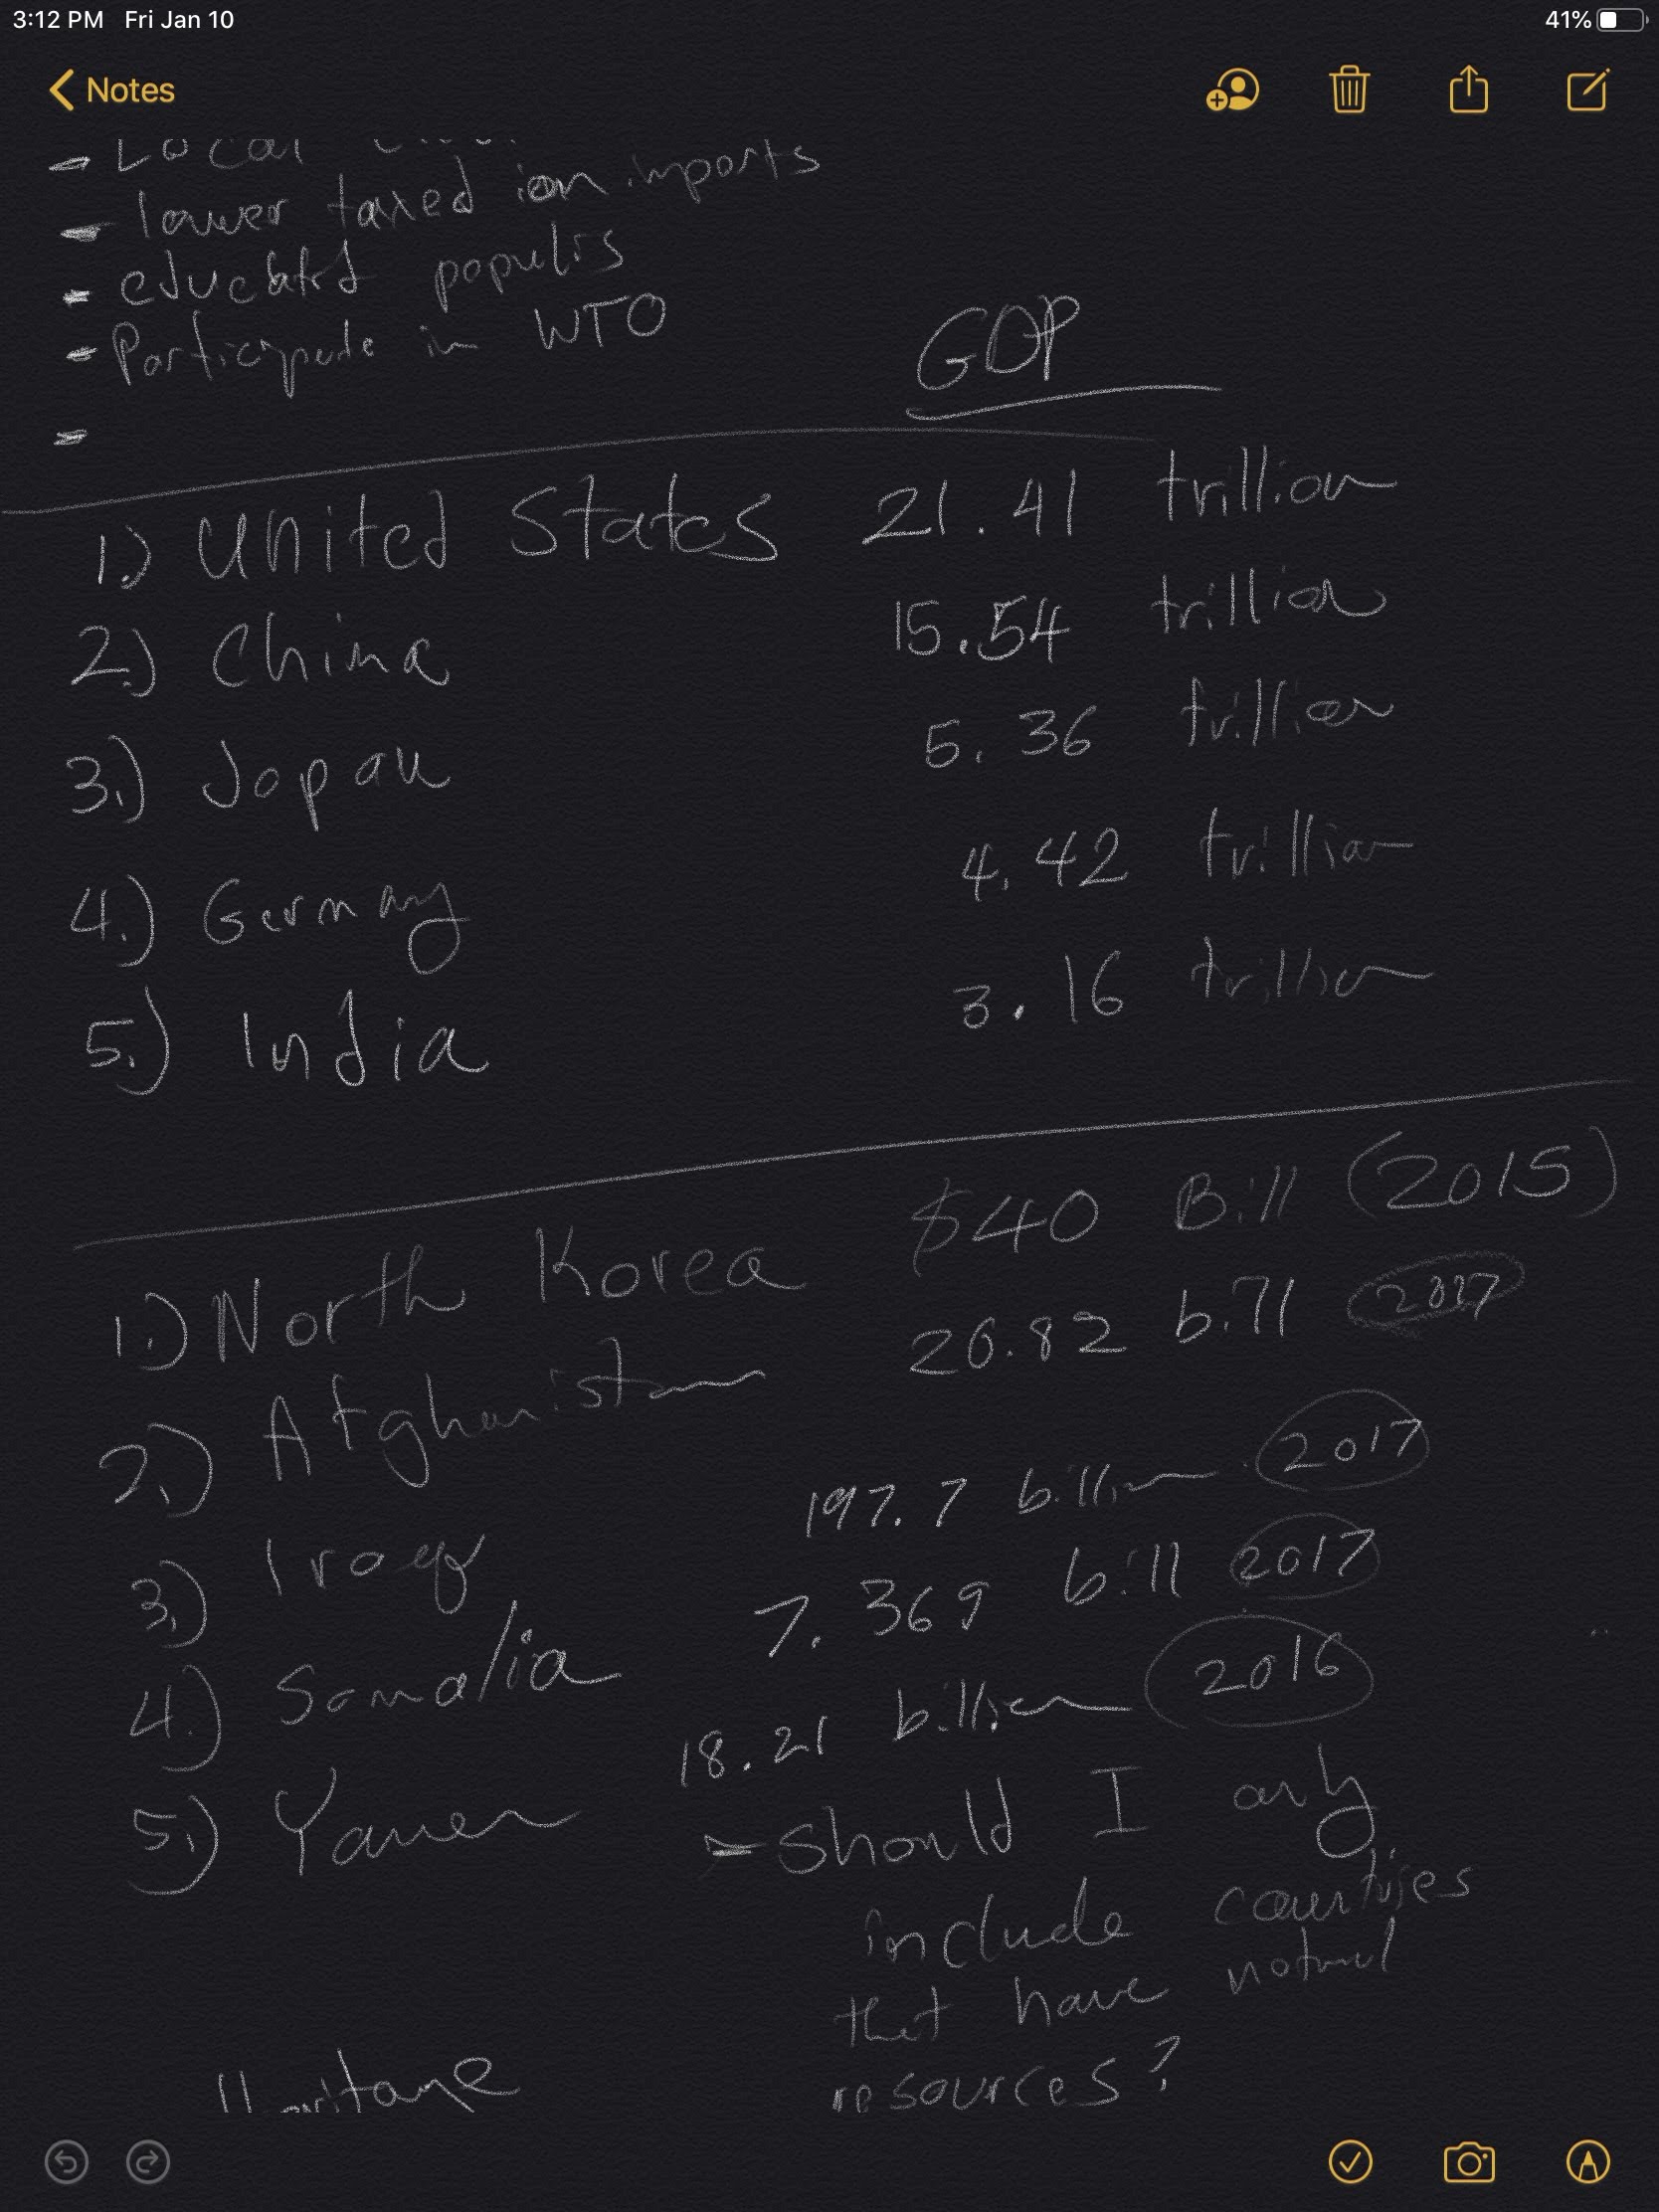 3:12 PM Fri Jan 10 41%
Notes
- Local
- lower taxed ion imports
- educated populis
- Participate in WTO
-
GDP
1.) United States 21.41 trillion
2.) China 15.54 trillion
3.) Japan 5.36 trillion
4.) Germany 4.42 trillion
5.) India 3.16 trillion
1.) North Korea $40 Bill (2015)
2.) Afghanistan 20.82 bill 2017
3.) Iraq 197.7 billion 2017
4.) Somalia 7.369 bill 2017
5.) Yamen 18.21 billion 2016
- Should I only
include countries
that have natural
resources?
Heritage